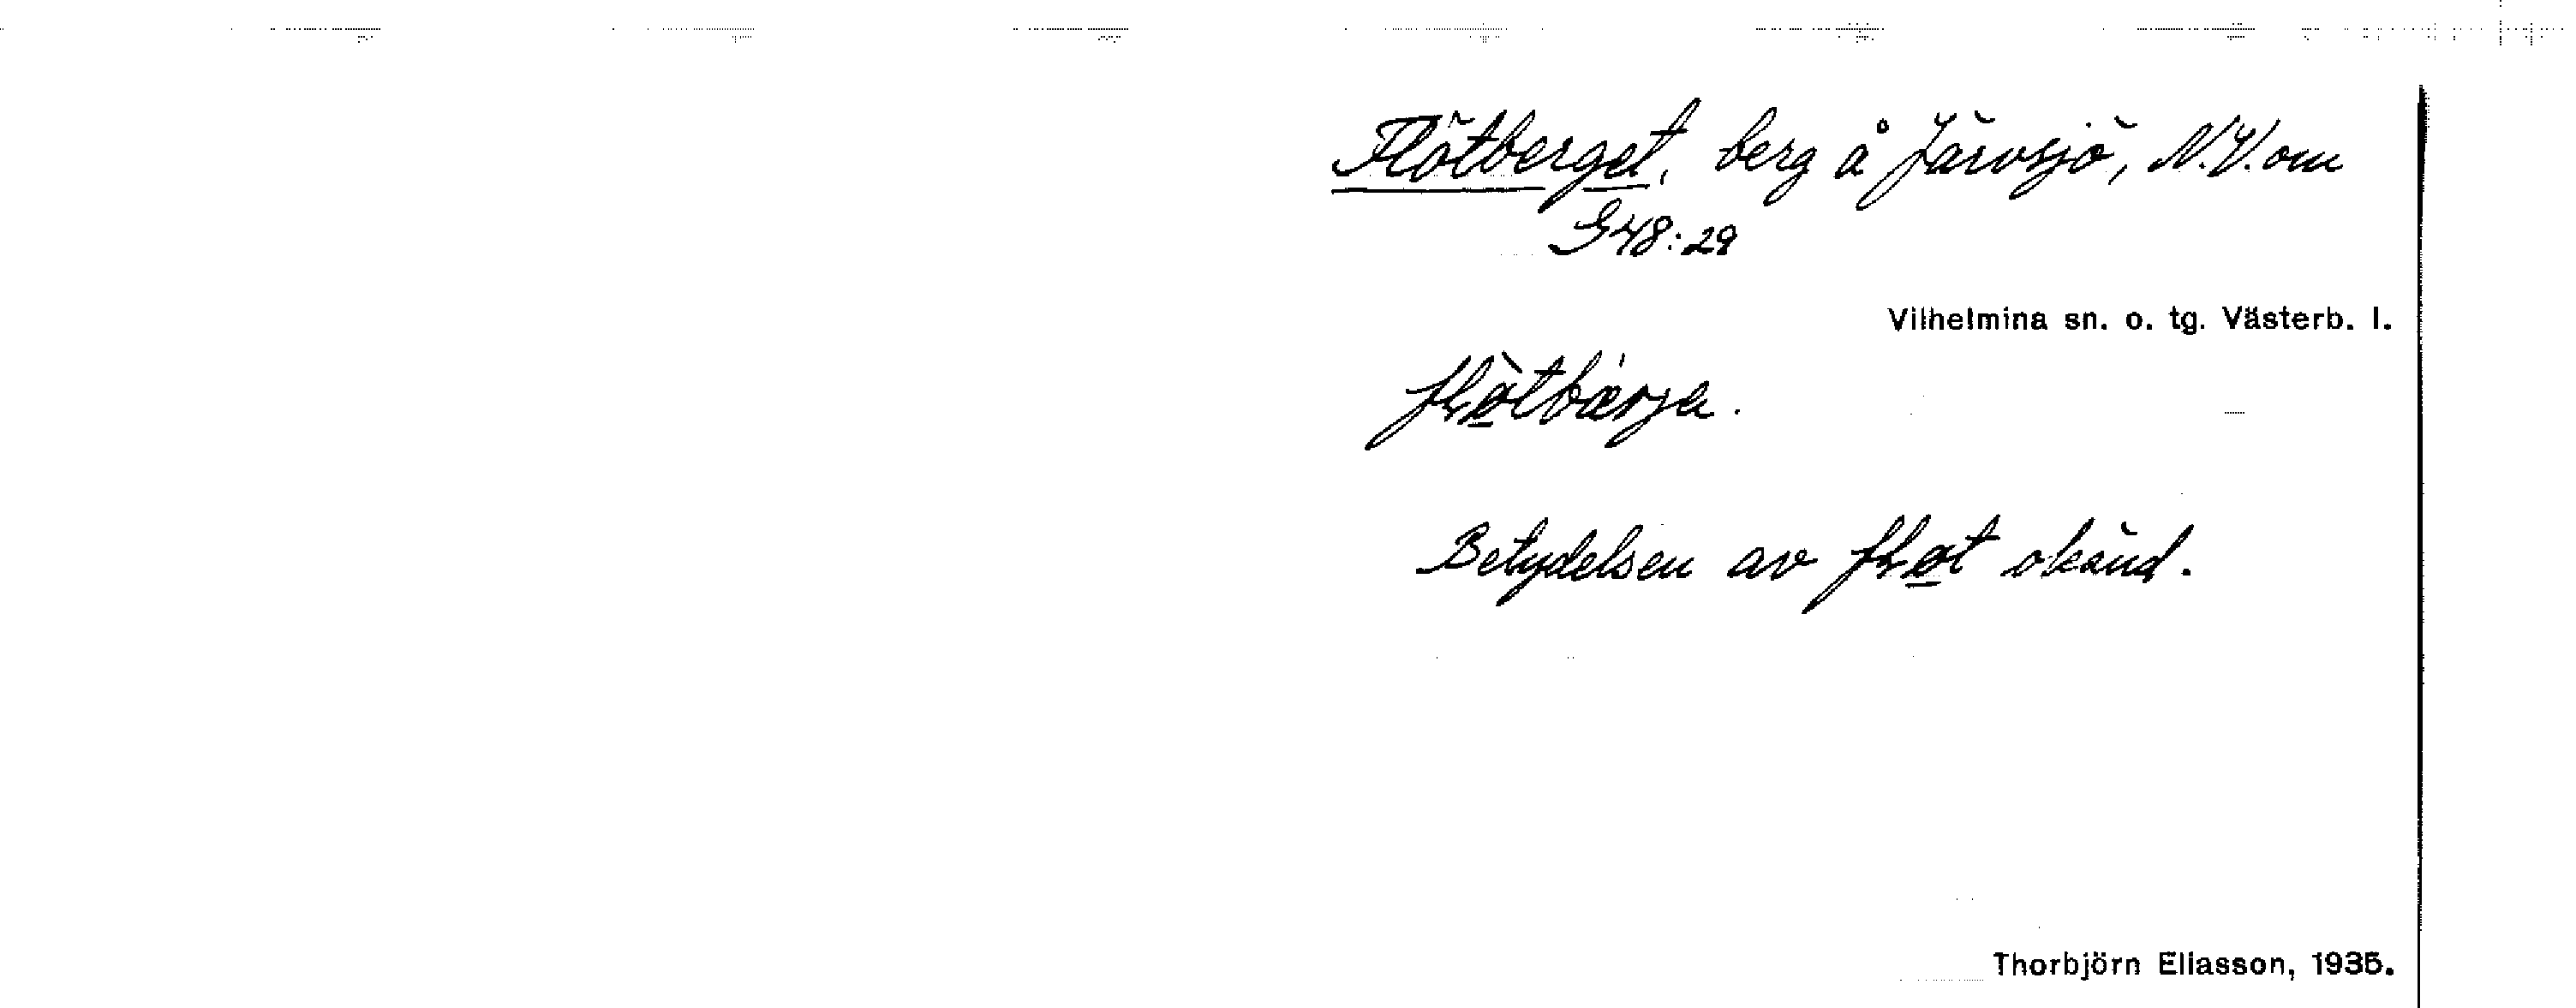 Flötberget, berg å Järvsjö, N.V. om
G48:29
Vilhelmina sn. o. tg. Västerb. l.
Betydelsen av okänd.
Thorbjörn Eliasson, 1935.